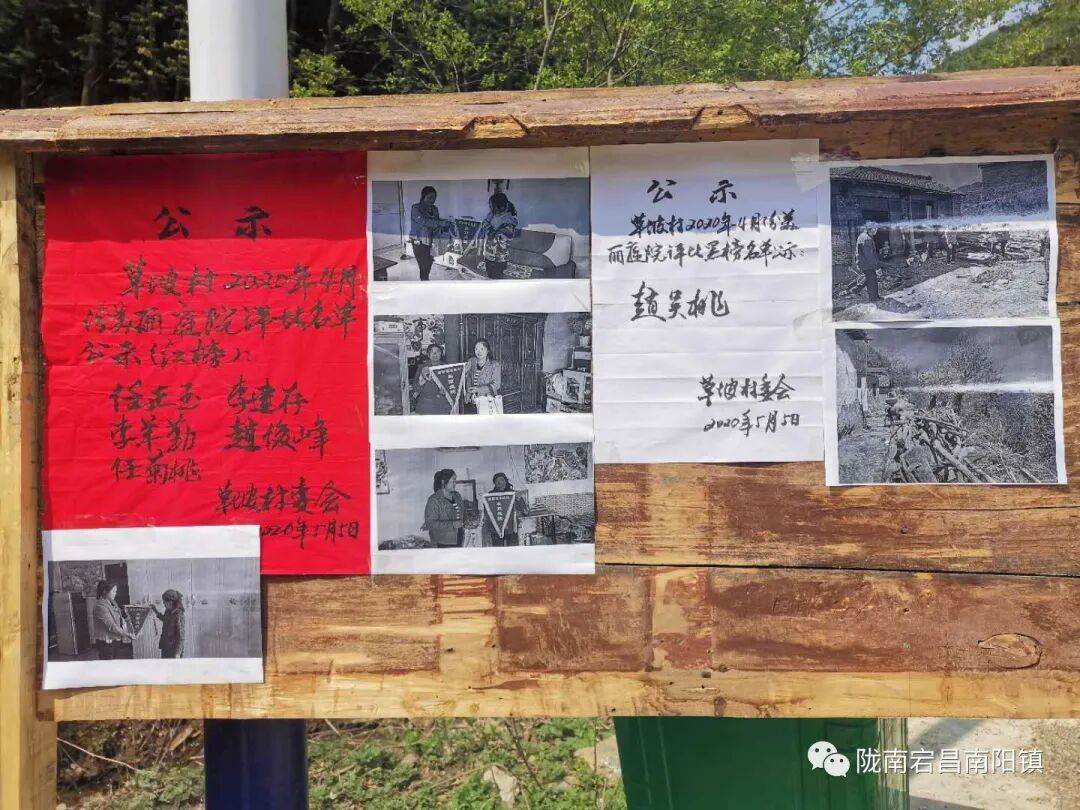 公 示
草坡村2020年4月
份美丽庭院评比名单
公示（红榜）：
任正玉 李建存
李军勤 赵俊峰
任菊桃
草坡村委会
2020年5月5日
公 示
草坡村2020年4月份美
丽庭院评比黑榜名单示：
赵吴桃
草坡村委会
2020年5月5日
陇南宕昌南阳镇